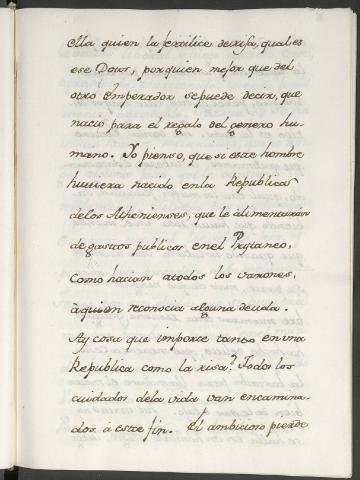 Alla quien la fertilice de risa, qual es
ese Doros, por quien mejor que del
otro Emperador se puede decir, que
nacio para el regalo del genero hu-
mano. Yo pienso, que si este hombre
huviera nacido en la Republica
de los Athenienses, que le alimentaran
de gastos publicos en el Prytaneo,
como hacian a todos los varones,
à quien reconocia alguna deuda.
Ay cosa que importe tanto en una
Republica como la risa? Todos los
cuidados de la vida van encamina-
dos à este fin. El ambicioso pierde